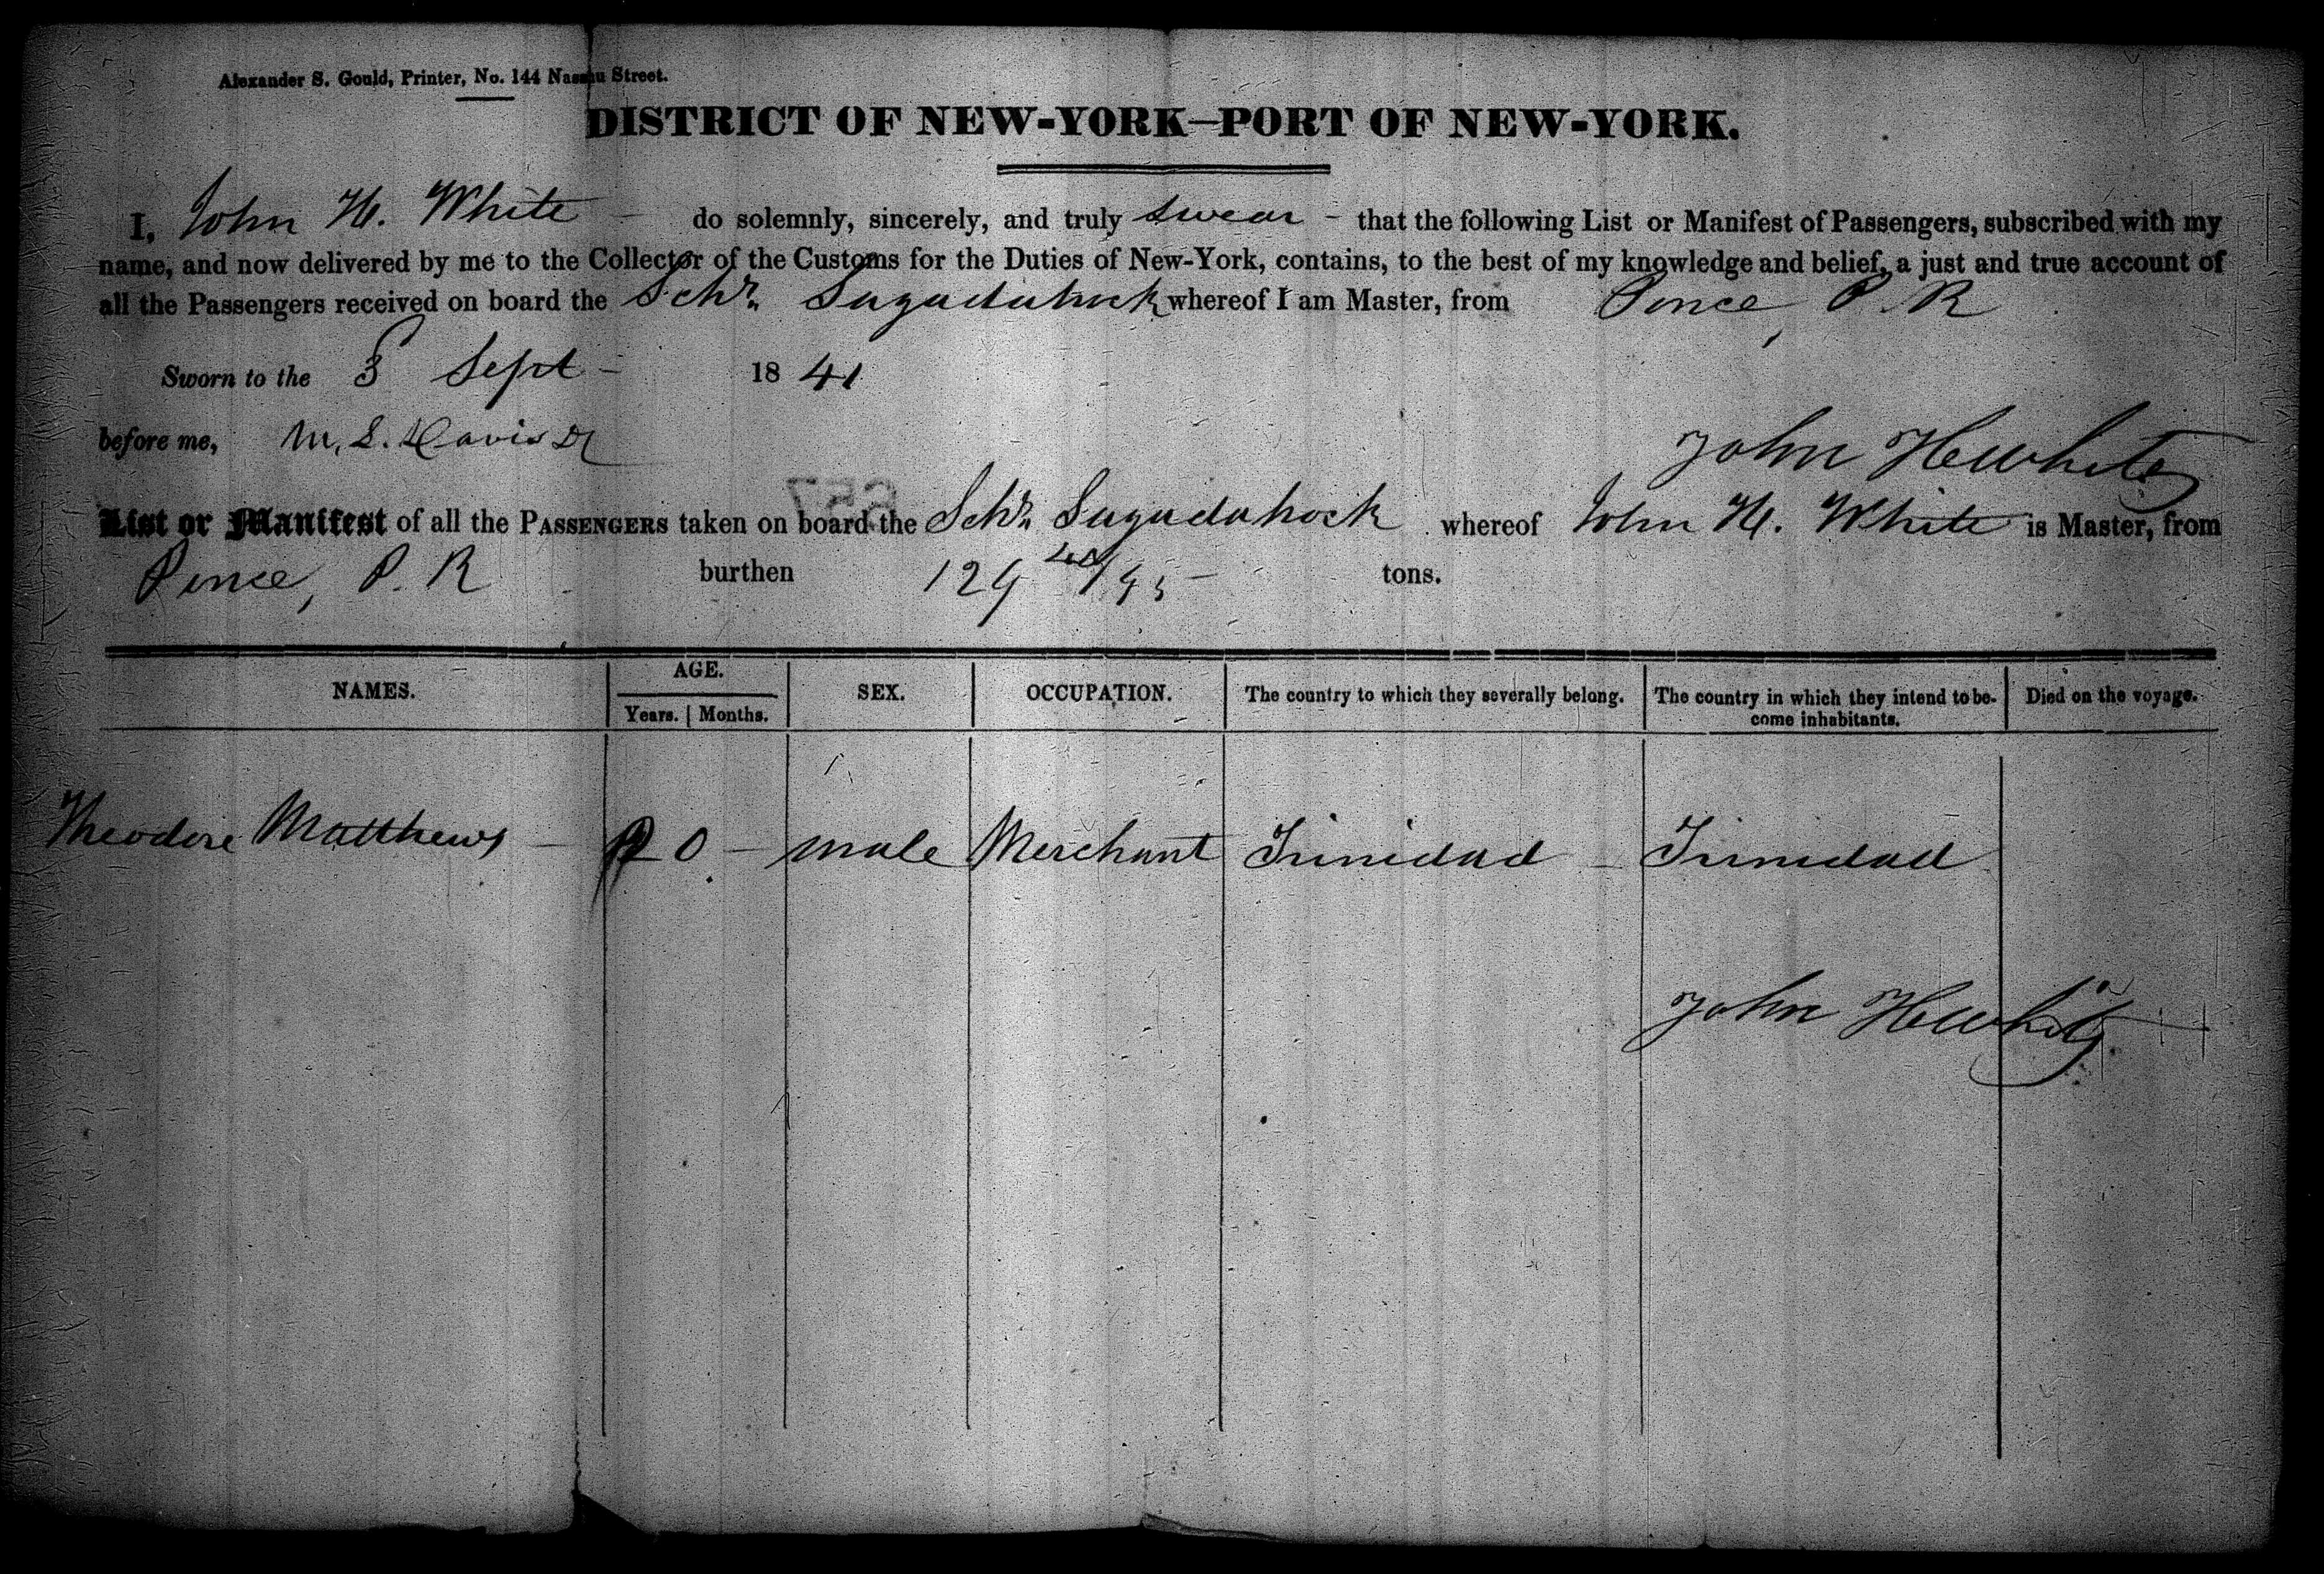 Alexander S. Gould, Printer, No. 144 Nassau Street.
DISTRICT OF NEW-YORK—PORT OF NEW-YORK.
I, John H. White do solemnly, sincerely, and truly swear - that the following List or Manifest of Passengers, subscribed with my
name, and now delivered by me to the Collector of the Customs for the Duties of New-York, contains, to the best of my knowledge and belief, a just and true account of
all the Passengers received on board the Schr Sagadahock whereof I am Master, from Ponce, P. R
Sworn to the 3 Sept - 1841
before me, M. L. Davis
John H White
List or Manifest of all the PASSENGERS taken on board the Schr Sagadahock whereof John H. White is Master, from
Ponce, P. R burthen 129 /95 tons.
NAMES. AGE. Years. Months. SEX. OCCUPATION. The country to which they severally belong. The country in which they intend to become inhabitants. Died on the voyage.
Theodore Matthews - 20 - male Merchant Trinidad - Trinidad
John H White